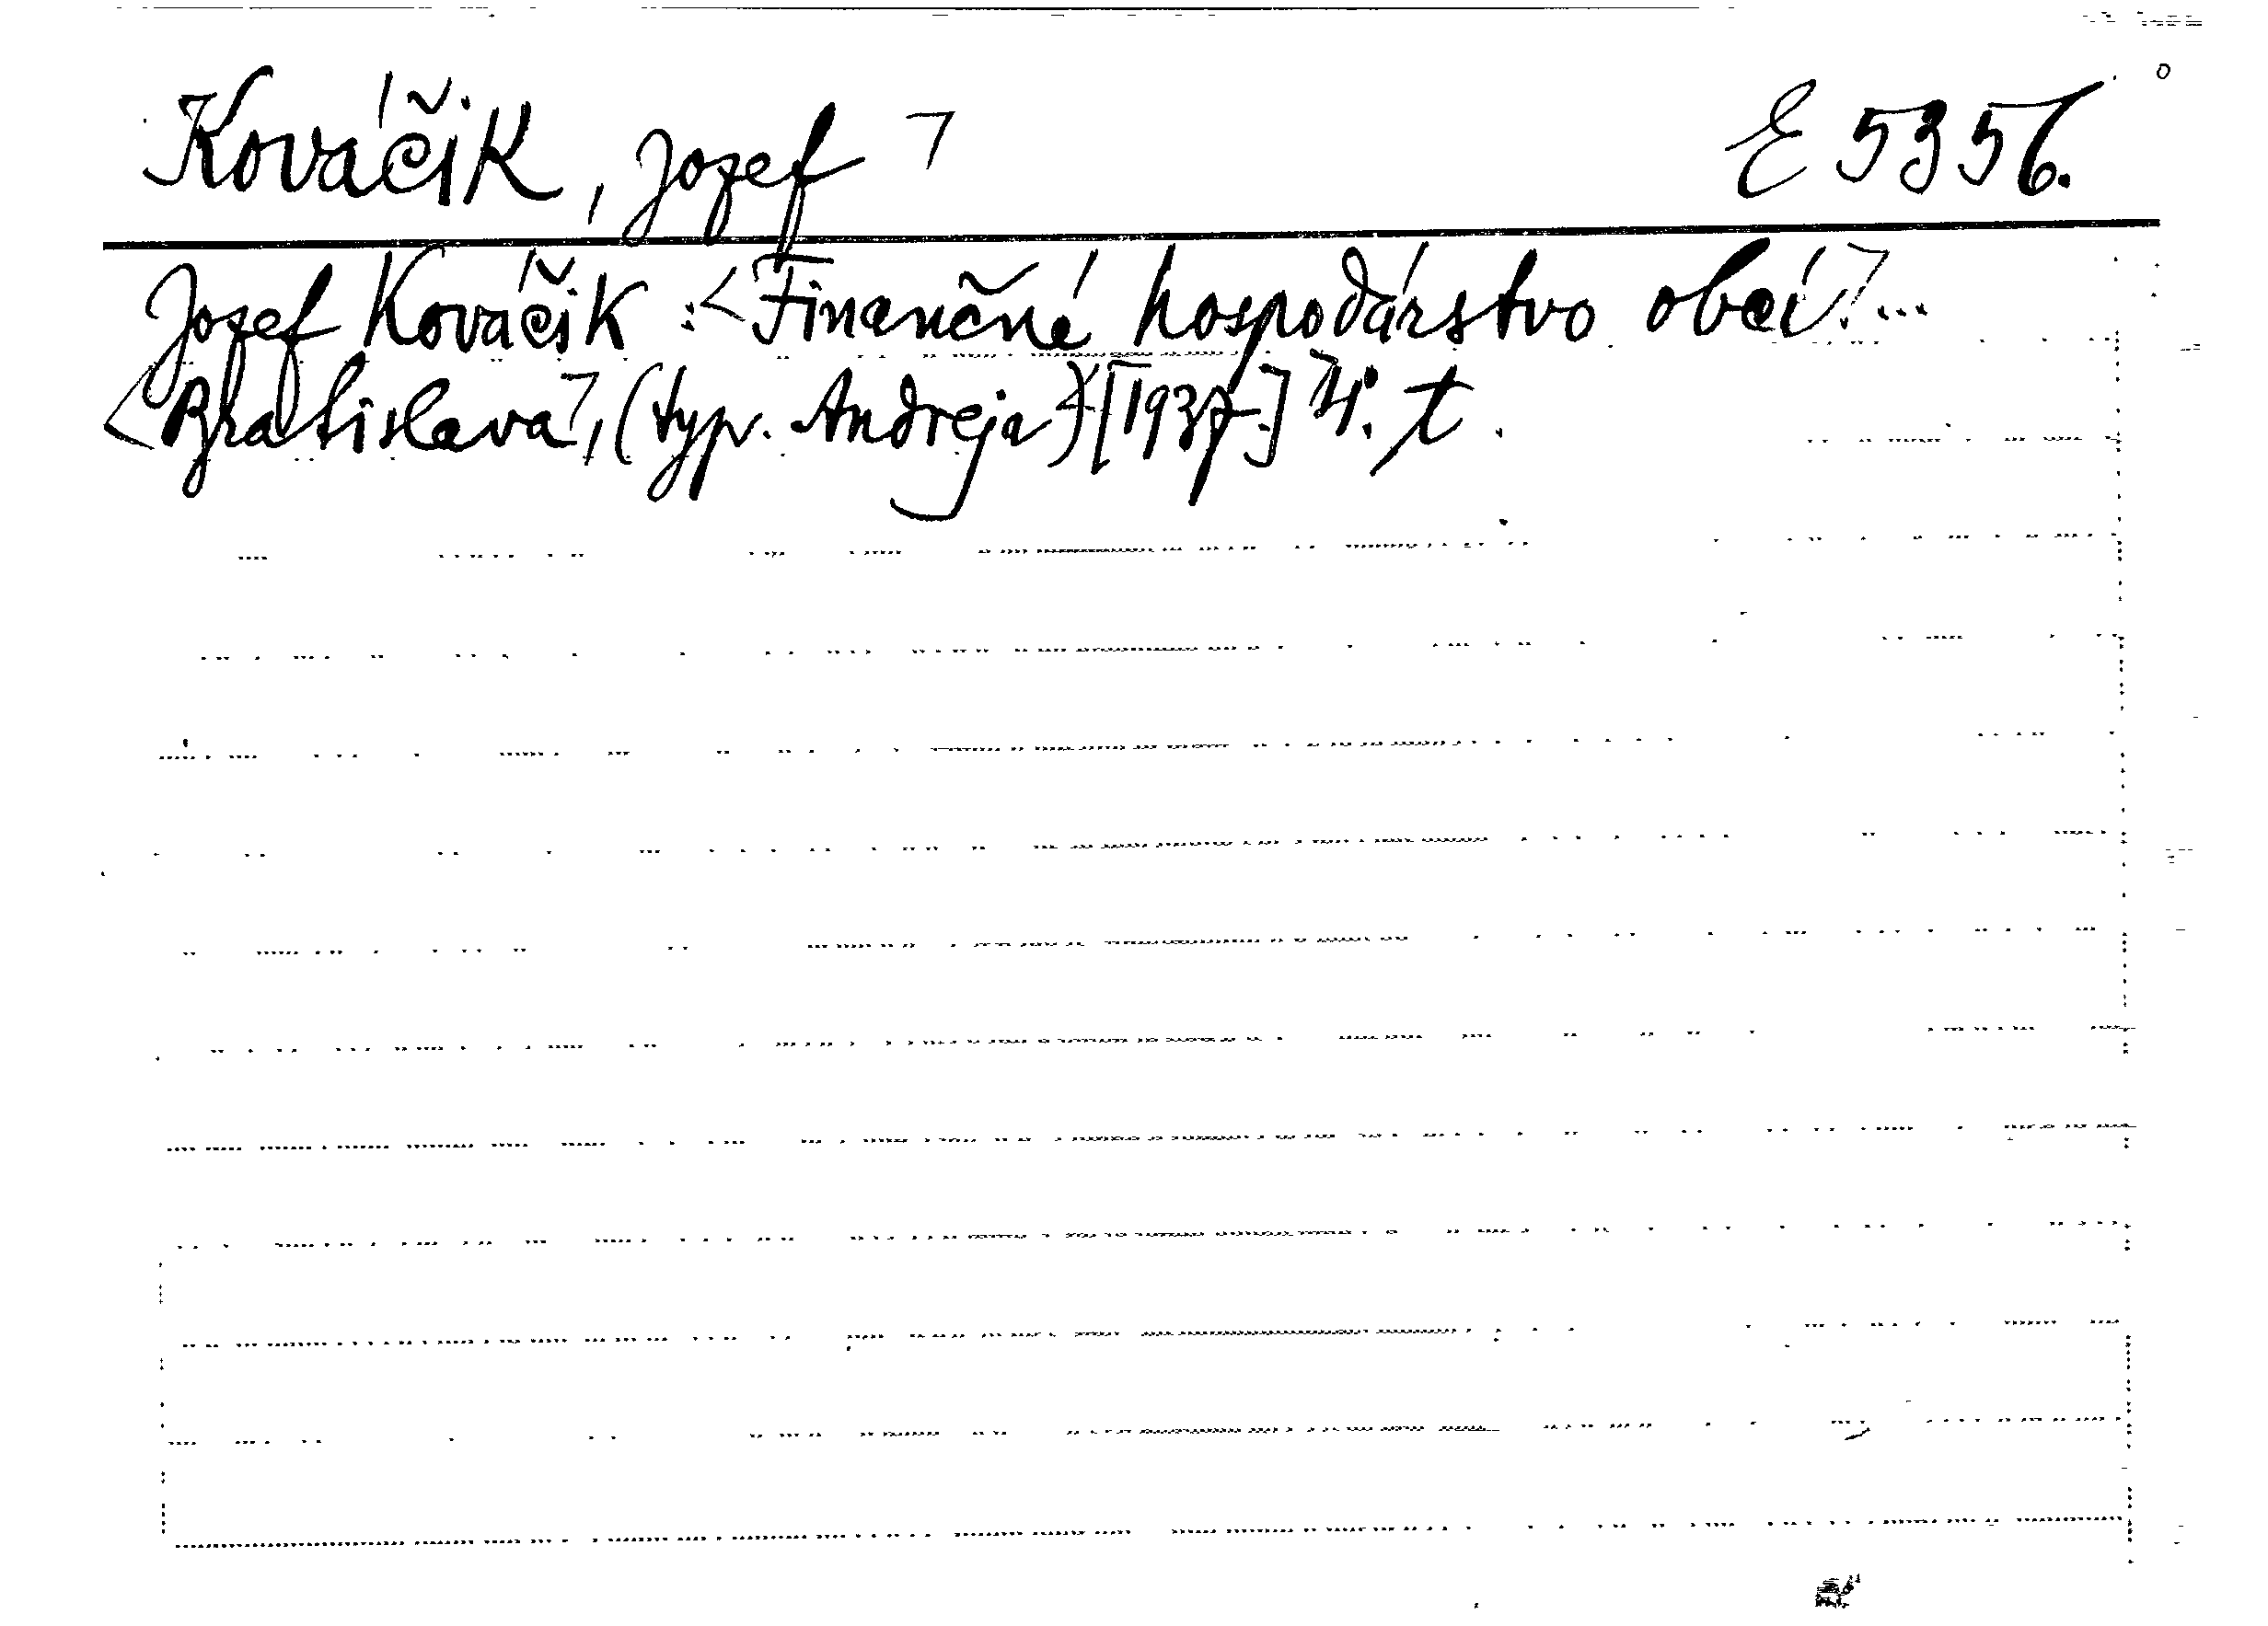 Kováčik, Jozef ㄱ E 5356.
Jozef Kováčik : <Finančné hospodárstvo obcí.ㄱ...
<Bratislavaㄱ, (typ. Andreja) [1937.] 4°. t.